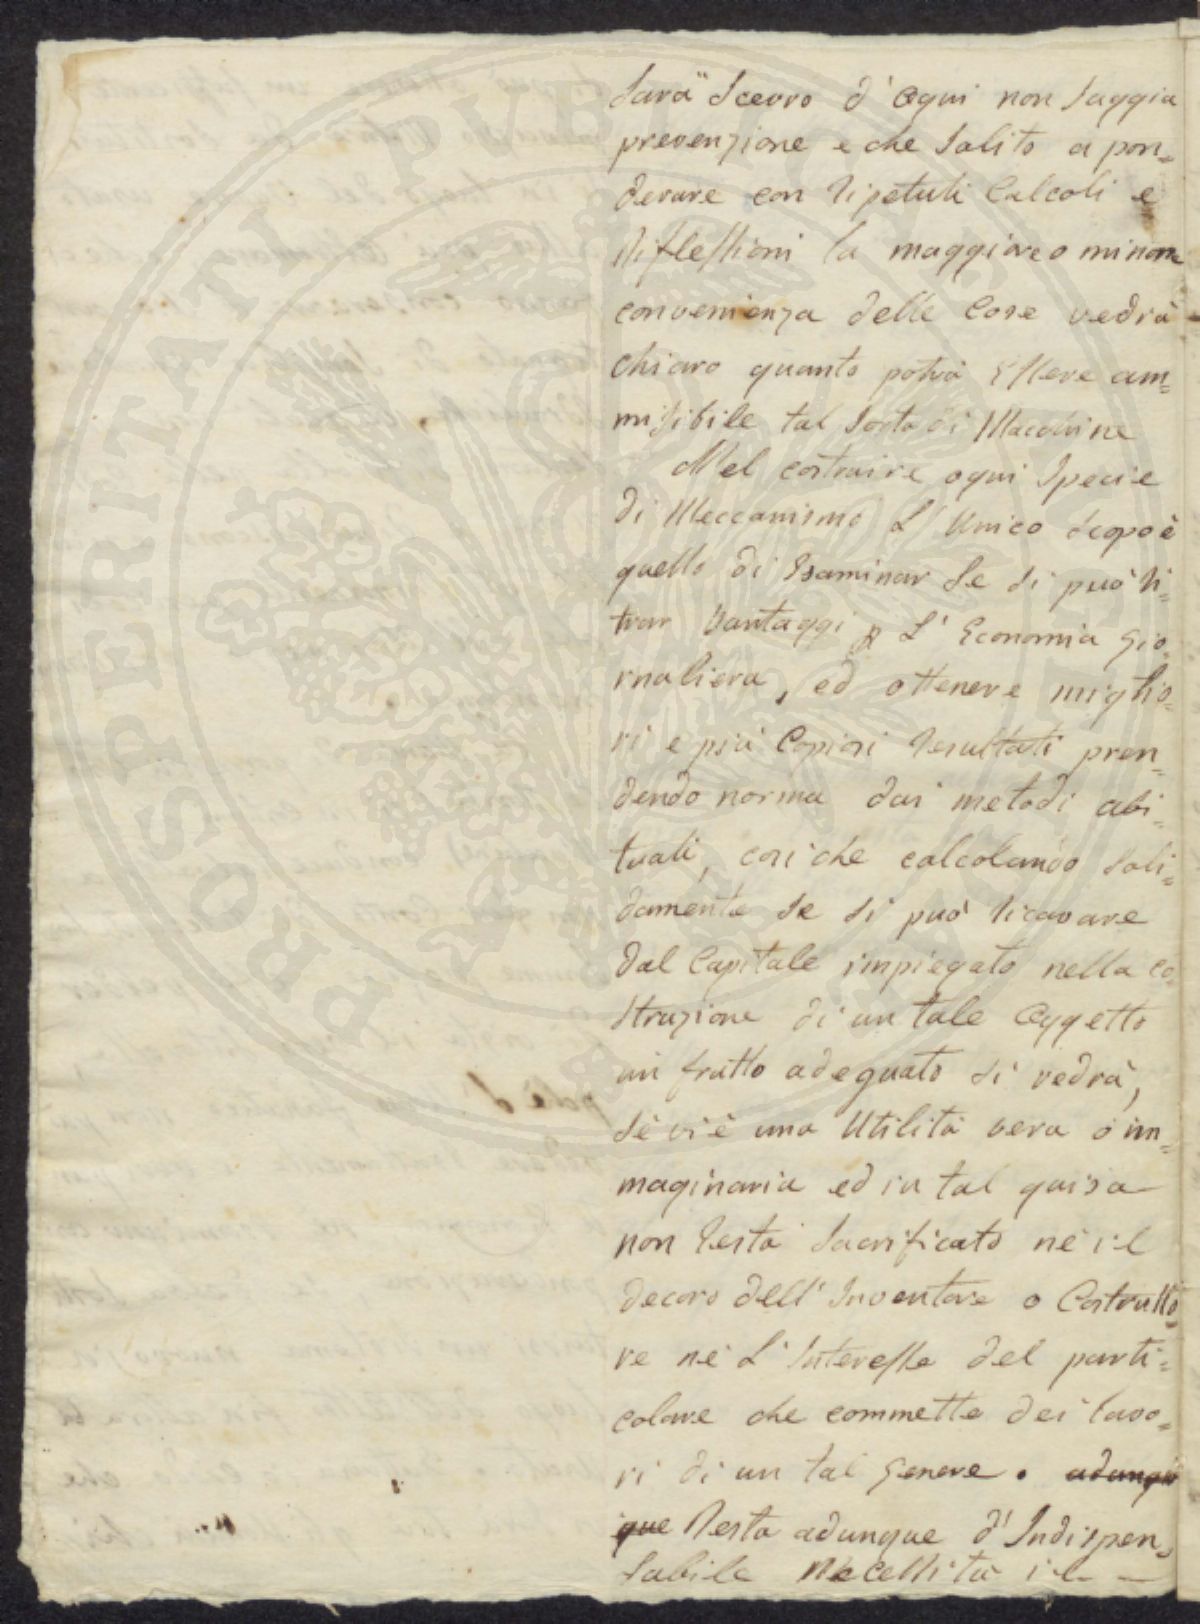 Sarà Scevro d'Ogni non Saggia
prevenzione e che Salito a pon=
derare con Ripetuti Calcoli e
Riflessioni la maggiore o minore
convenienza delle Cose vedrà
chiaro quanto potrà Essere am=
misibile tal Sorta di Macchine
Nel costruire ogni Specie
di Meccanismo L'Unico Scopo è
quello di Esaminar Se Si può ri=
trar Vantaggi p L'Economia Gio=
rnaliera, ed ottenere miglio=
ri e più Copiosi Resultati pren=
dendo norma dai metodi abi=
tuali, cosi che calcolando Soli=
damente Se Si può Ricavare
dal Capitale impiegato nella co=
Struzione di un tale Oggetto
un frutto adeguato Si vedrà,
Sè vi è una Utilità vera o im=
maginaria ed in tal guisa
non Resta Sacrificato nè il
decoro dell'Inventore o Costrutto=
re nè L'Interesse del parti=
colare che commette dei lavo=
ri di un tal Genere. adunque
que Resta adunque d'Indispen=
Sabile Necessità il
PROSPERITATI PUBLICAE